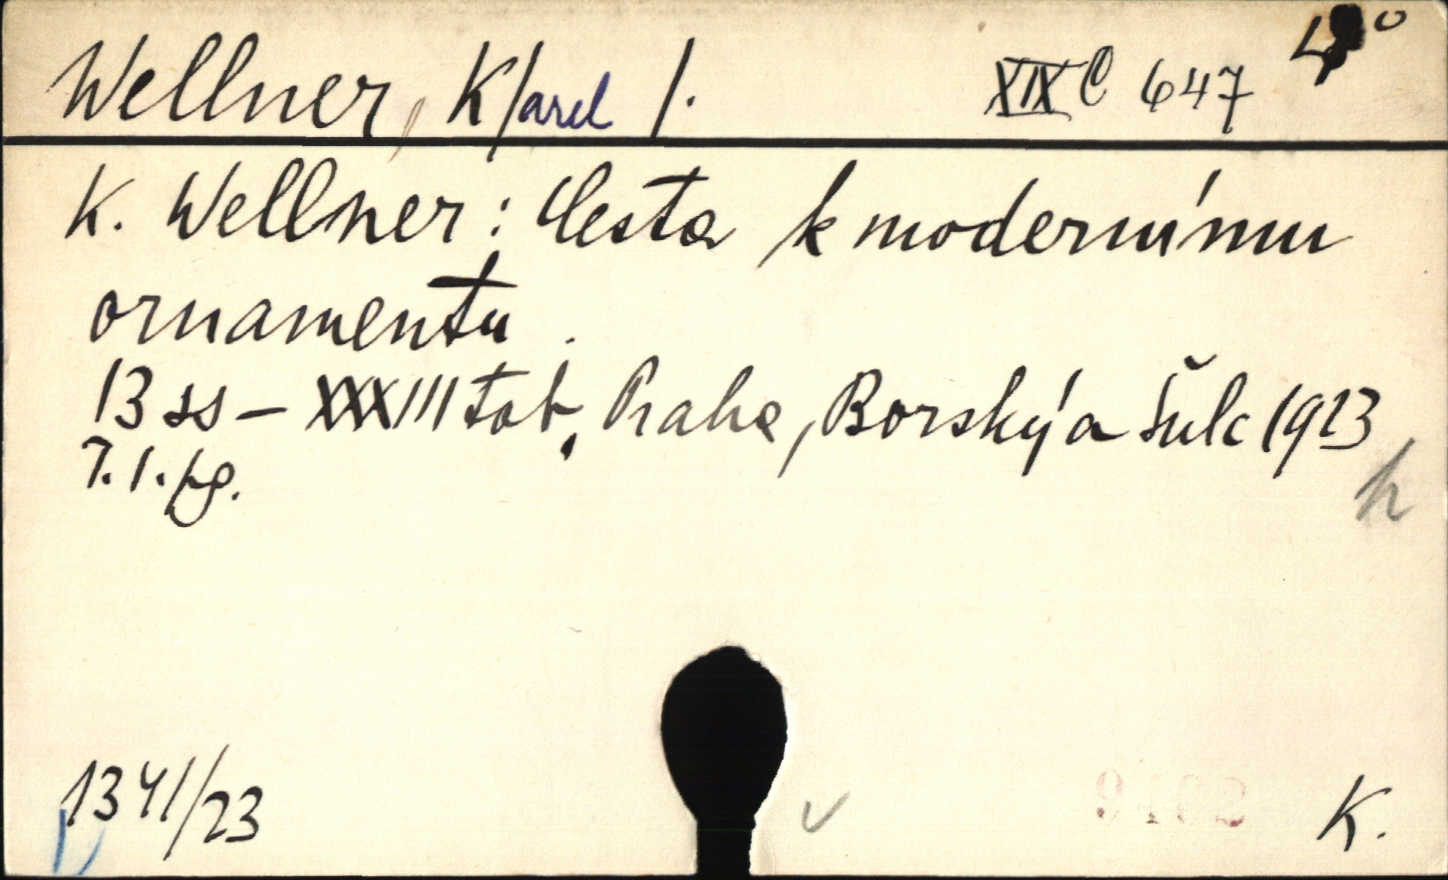 Wellner, K/arel /. XIX C 647 4°
K. Wellner: Cesta k modernímu
ornamentu.
13 ss - XXXIII tab, Praha, Borský a Šulc 1923
7. 1. fg.
h
1341/23
K.